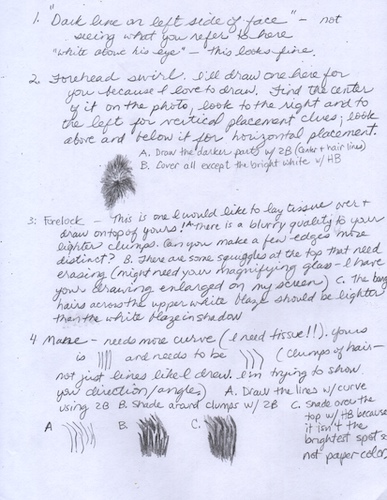 1. "Dark line on left side of face" - not
seeing what you refer to here
"White above his eye" - this looks fine.
2. Forehead swirl. I'll draw one here for
you because I love to draw. Find the center
of it on the photo, look to the right and to
the left for vertical placement clues; look
above and below it for horizontal placement.
A. Draw the darker parts w/ 2B (center + hair lines)
B. Cover all except the bright white w/ HB
3. Forelock - This is one I would like to lay tissue over +
draw on top of yours! A. There is a blurry quality to your
lighter clumps. Can you make a few edges more
distinct? B. There are some squiggles at the top that need
erasing (might need your magnifying glass - I have
your drawing enlarged on my screen) C. The bang
hairs across the upper white blaze should be lighter
than the white blaze in shadow
4 Mane - needs more curve (I need tissue!!). Yours
is and needs to be (clumps of hair -
not just lines like I drew. I'm trying to show
you direction/angles) A. Draw the lines w/ curve
using 2B B. Shade around clumps w/ 2B C. Shade over the
top w/ HB because
it isn't the
brightest spot so
not paper color.
A B. C.